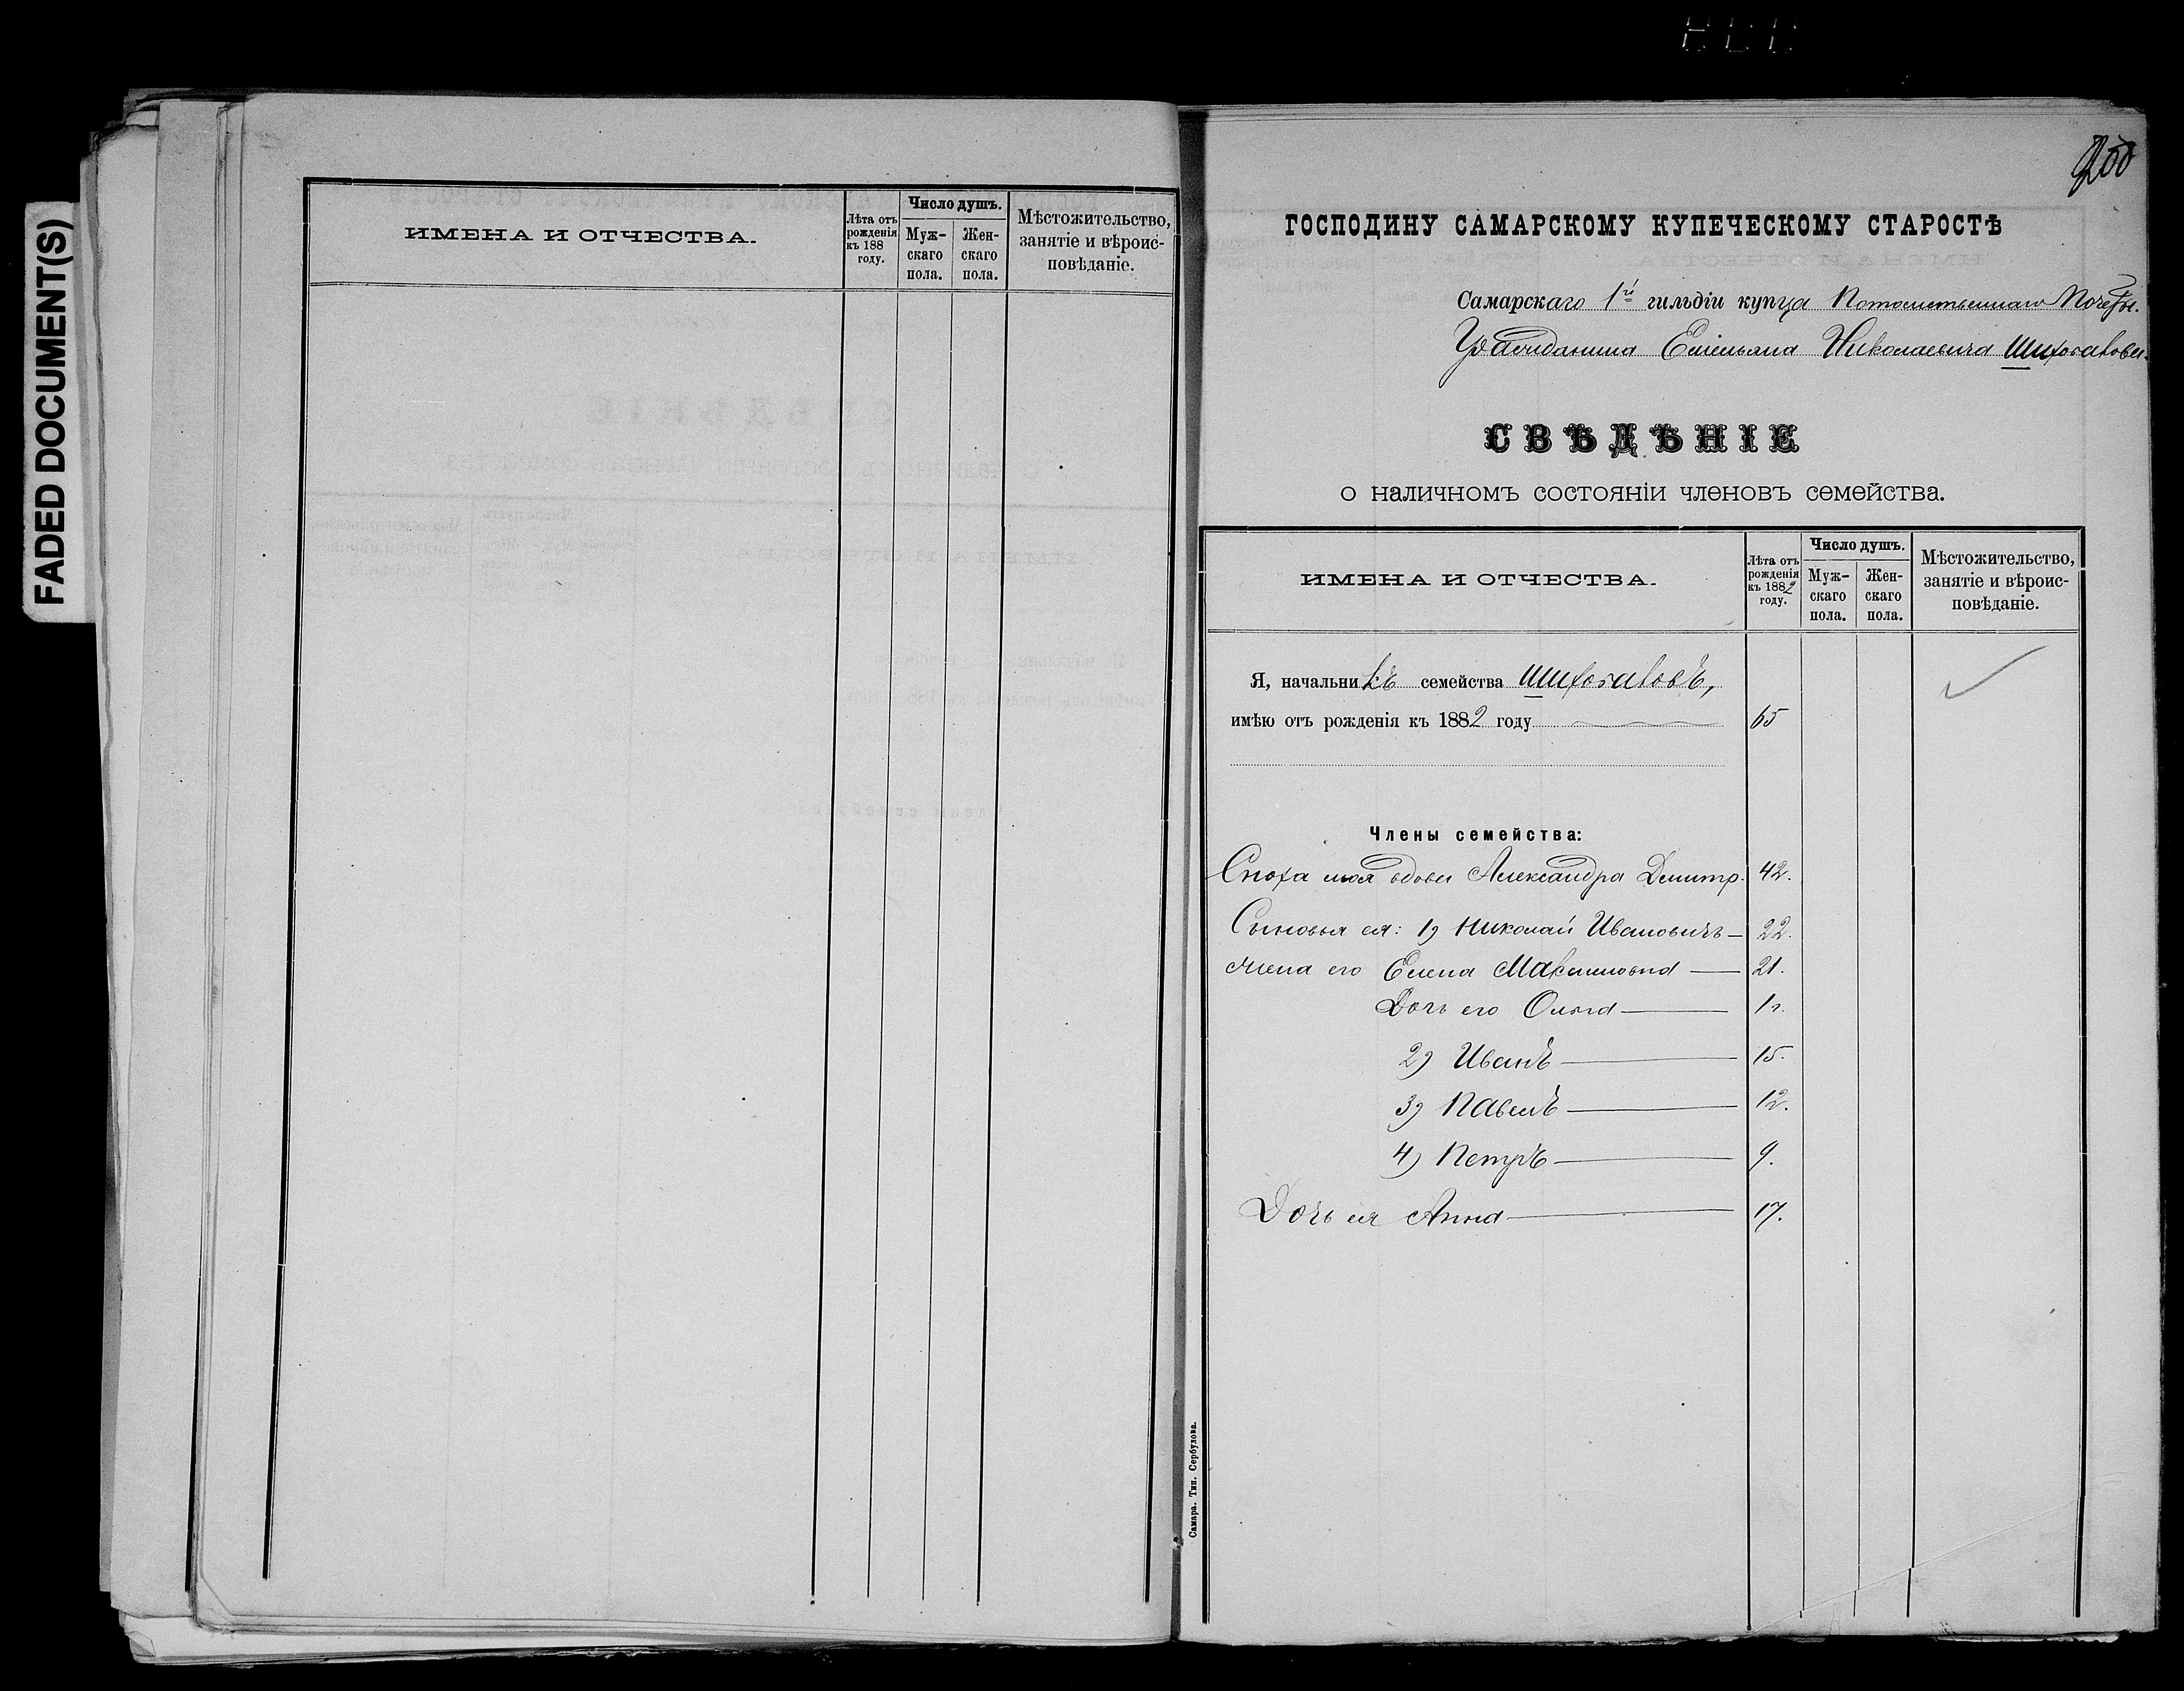 FADED DOCUMENT(S)
ИМЕНА И ОТЧЕСТВА.
Лѣта отъ рожденія къ 188 году.
Число душъ.
Муж-скаго пола.
Жен-скаго пола.
Мѣстожительство, занятіе и вѣроис-повѣданіе.
200
ГОСПОДИНУ САМАРСКОМУ КУПЕЧЕСКОМУ СТАРОСТѢ
Самарскаго 1й гильдіи купца Потомственнаго Почетн.
Гражданина Емельяна Николаевича Шихобалова.
СВѢДѢНІЕ
о наличномъ состояніи членовъ семейства.
ИМЕНА И ОТЧЕСТВА.
Лѣта отъ рожденія къ 1882 году.
Число душъ.
Муж-скаго пола.
Жен-скаго пола.
Мѣстожительство, занятіе и вѣроис-повѣданіе.
Я, начальникъ семейства Шихобаловъ,
имѣю отъ рожденія къ 1882 году 65
Члены семейства:
Сноха моя вдова Александра Дмитр. 42.
Сыновья ея: 1) Николай Ивановичъ — 22.
Жена его Елена Максимовна — 21.
Дочь его Ольга — 1 г.
2) Иванъ — 15.
3) Павелъ — 12.
4) Петръ — 9.
Дочь ея Анна — 17.
Самара. Тип. Сербулова.